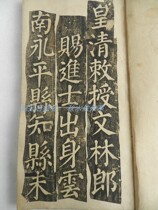 皇清敕授文林郎
賜進士出身雲
南永平縣知縣宋